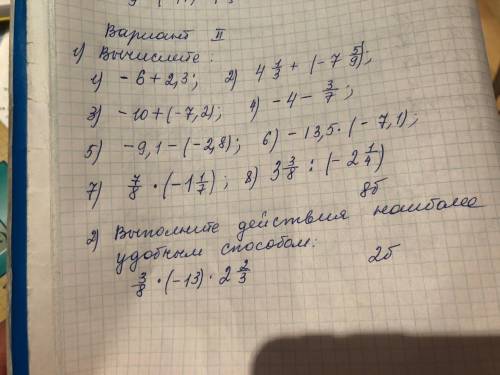 Вариант II
1) Вычислите:
1) -6+2,3; 2) 4 1/3 + (-7 5/9);
3) -10+(-7,2); 4) -4 - 3/7;
5) -9,1-(-2,8); 6) -13,5·(-7,1);
7) 7/8 · (-1 1/7); 8) 3 3/8 : (-2 1/4)
8б
2) Выполните действия наиболее
удобным способом:
2б
3/8 · (-13) · 2 2/3